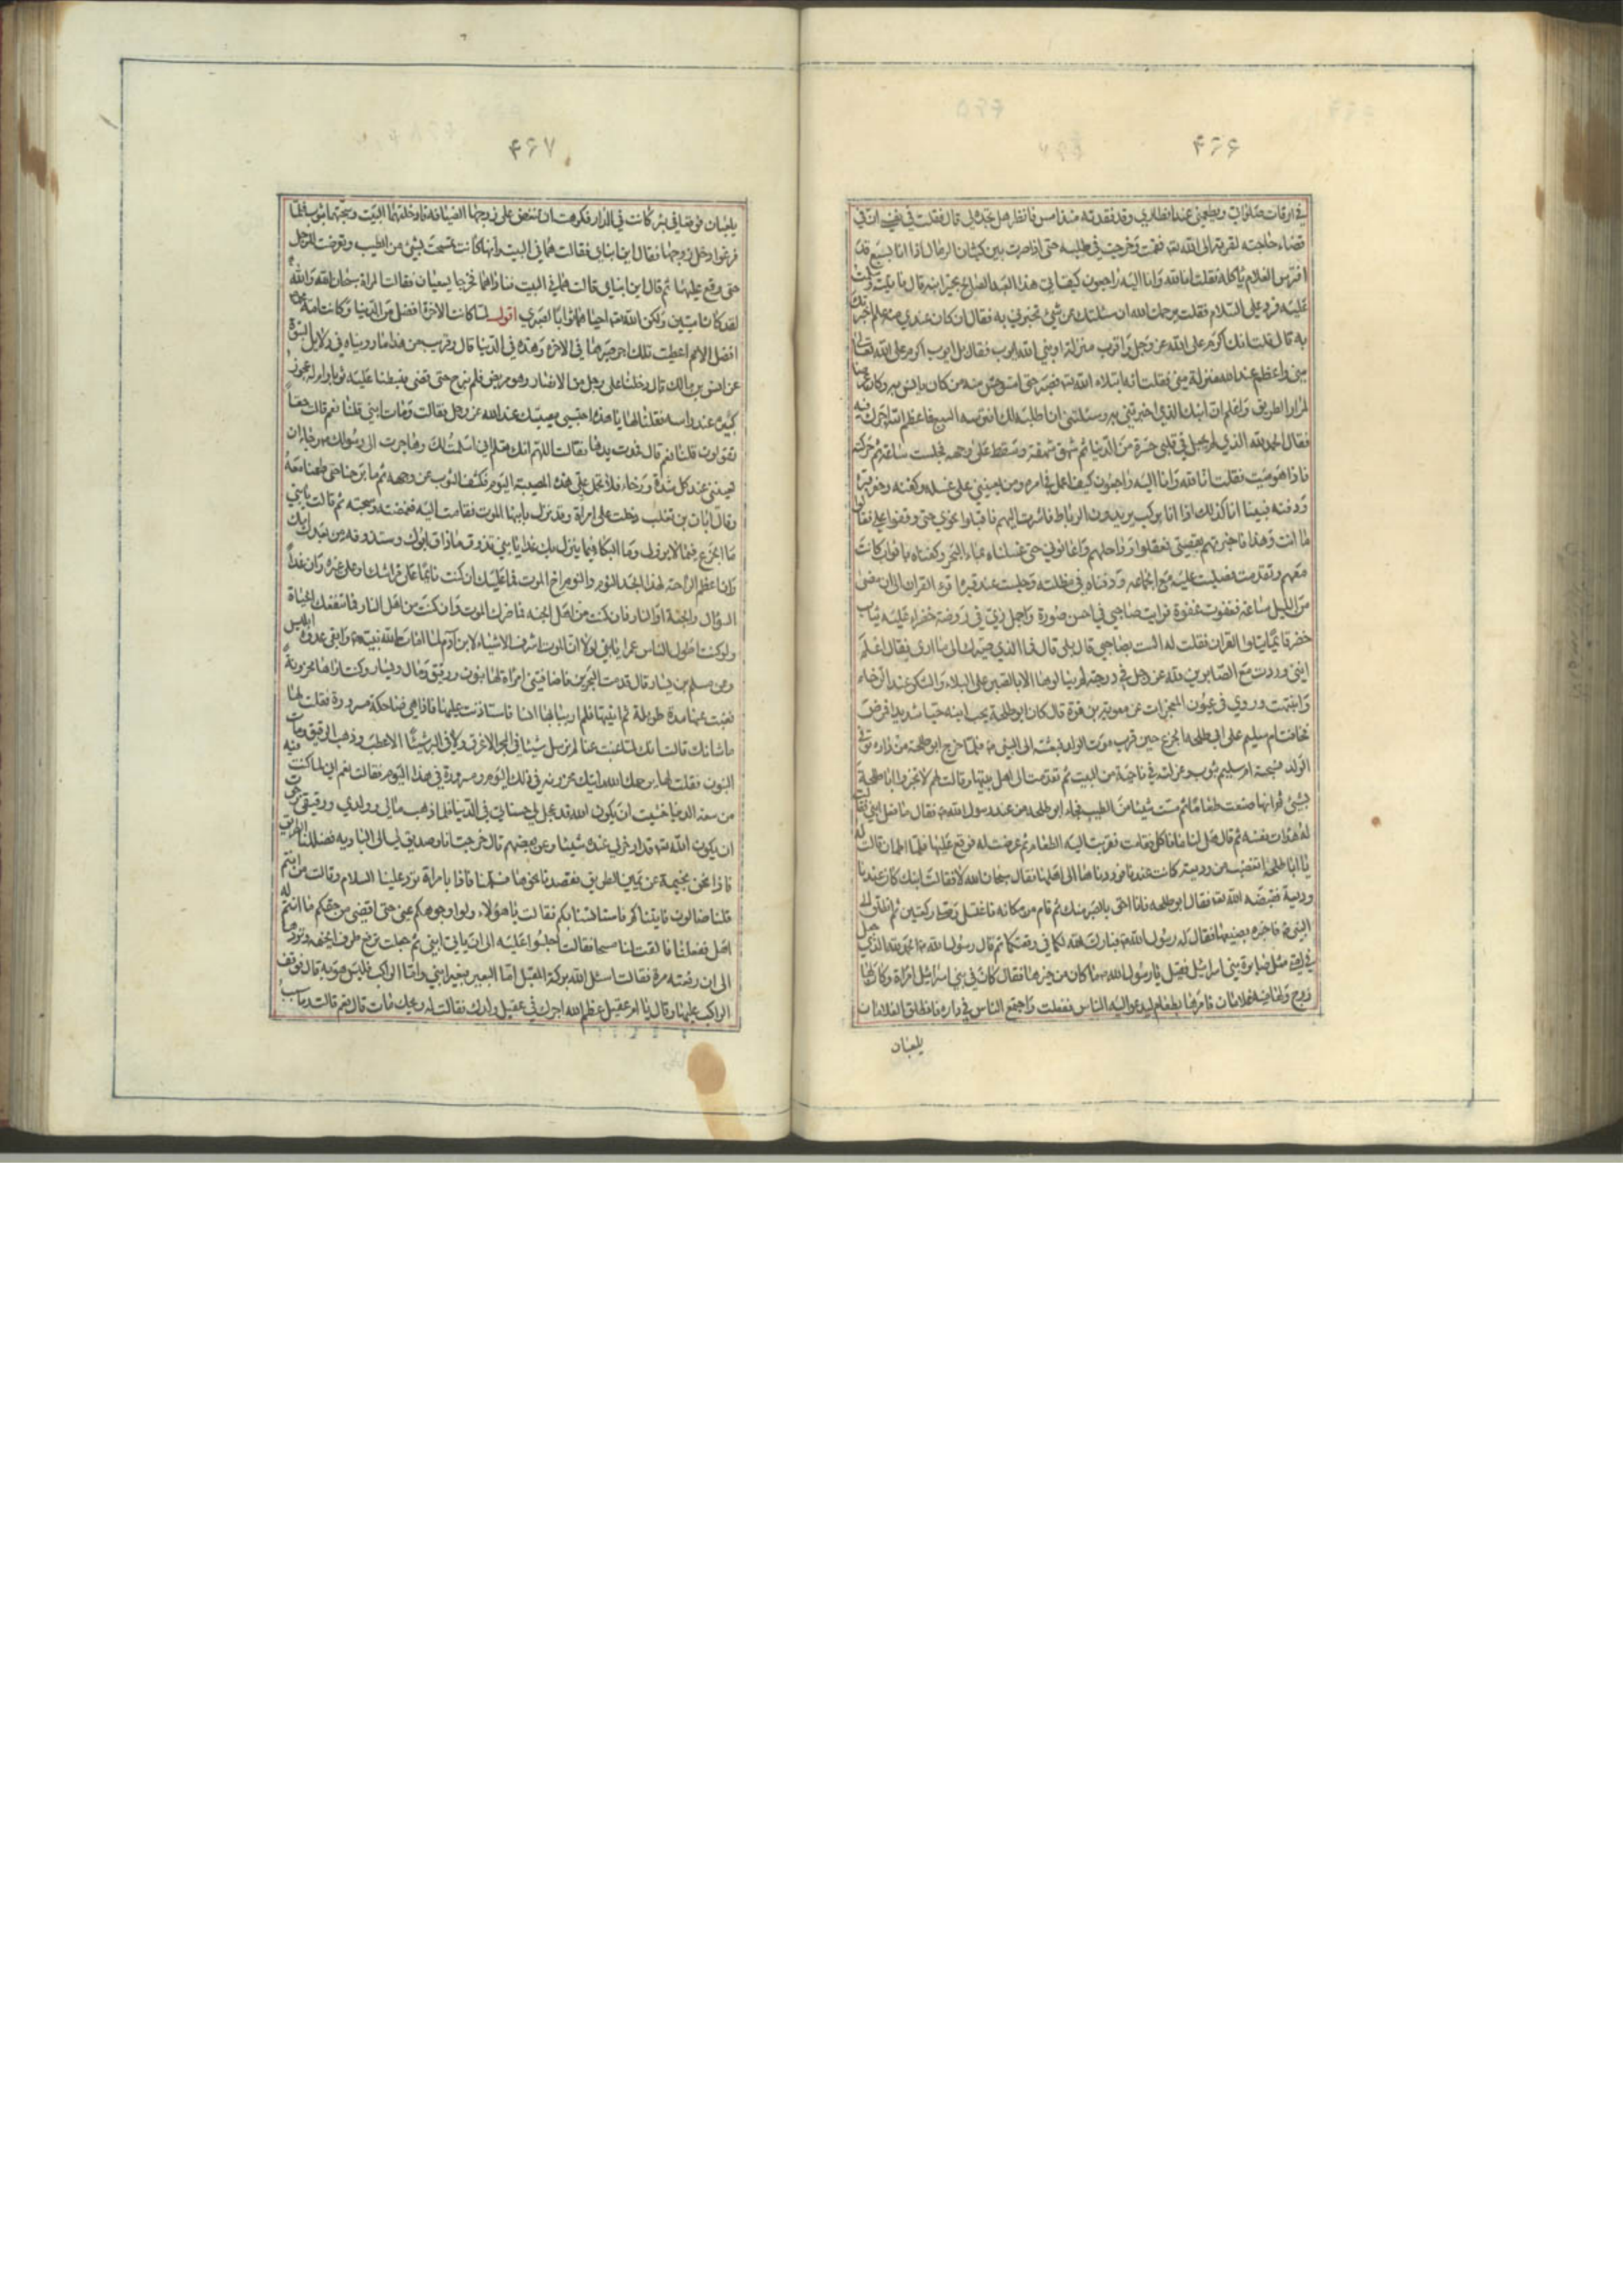 ۴۶۶
في اوقات صلواتي ويطعمني عند افطاري وقد فقدته منذ امس فانظر هل تجده لي قال فقلت في نفسي ان في
قضاء حاجته لقربة الى الله تعالى فقمت وخرجت في طلبه حتى اذا صرت بين كثبان الرمال اذا انا بسبع قد
افترس الغلام يأكله فقلت انا لله وانا اليه راجعون كيف اتي هذا العبد الصالح بخبر ابنه قال فاتيته وسلمت
عليه فرد علي السلام فقلت يرحمك الله ان سئلتك عن شيء تخبرني به فقال ان كان عندي منه علم اخبرتك
به قال قلت انك اكرم على الله عز وجل واقرب منزلة او نبي الله ايوب فقال بل ايوب اكرم على الله تعالى
مني واعظم عند الله منزلة مني فقلت انه ابتلاه الله تعالى فصبر حتى استوحش منه من كان يأنس به وكان غرضا
لمرار الطريق واعلم ان ابنك الذي اخبرتني به وسئلتني ان اطلبه لك افترسه السبع فاعظم الله اجرك فيه
فقال الحمد لله الذي لم يجعل في قلبي حسرة من الدنيا ثم شهق شهقة وسقط على وجهه فجلست ساعة ثم حركته
فاذا هو ميت فقلت انا لله وانا اليه راجعون كيف اعمل في امره ومن يعينني على غسله وكفنه وحفر قبره
ودفنه فبينما انا كذلك اذا انا بركب يريدون الرباط فاشرت اليهم فاقبلوا نحوي حتى وقفوا علي فقالوا
ما انت وهذا فاخبرتهم بقصتي فعقلوا رواحلهم واعانوني حتى غسلناه بماء البحر وكفناه باثواب كانت
معهم وتقدمت فصليت عليه مع الجماعة ودفناه في مظلته وجلست عند قبره اقرء القران الى ان مضى
من الليل ساعة فغفوت غفوة فرايت صاحبي في احسن صورة واجمل زي في روضة خضراء عليه ثياب
خضر قائما يتلوا القران فقلت له الست بصاحبي قال بلى قال فما الذي صيرك الى ما ارى فقال اعلم
انني وردت مع الصابرين لله عز وجل في درجة لم ينالوها الا بالصبر على البلاء والشكر عند الرخاء
وانتبهت وروي في عيون المجزات عن معوية بن قرة قال كان ابو طلحة يحب ابنه حبا شديدا فمرض
فخافت ام سليم على ابي طلحة الجزع حين قرب موت الولد فبعثته الى النبي ص فلما خرج ابو طلحة من داره توفي
الولد فسجته ام سليم بثوب وعزلته في ناحية من البيت ثم تقدمت الى اهل بيتها وقالت لهم لا تخبروا ابا طلحة
بشيء ثم انها صنعت طعاما ثم مست شيئا من الطيب فجاء ابو طلحة من عند رسول الله ص فقال ما فعل ابني فقالت
له هدأت نفسه ثم قال هل لنا ما ناكل فقامت فقربت اليه الطعام ثم عرضت له فوقع عليها فلما اطمأن قالت له
يا ابا طلحة اتغضب من وديعة كانت عندنا فرددناها الى اهلها فقال سبحان الله لا فقالت ابنك كان عندنا
وديعة فقبضه الله تعالى فقال ابو طلحة فانا احق بالصبر منك ثم قام من مكانه فاغتسل وصلى ركعتين ثم انطلق الى
النبي ص فاخبره بصنيعها فقال له رسول الله ص فبارك الله لكما في وقعتكما ثم قال رسول الله ص الحمد لله الذي جعل
في امتي مثل صابرة بني اسرائيل فقيل يا رسول الله ص ما كان من خبرها فقال كان في بني اسرائيل امراة وكان لها
زوج ولها منه غلامان فامرها بطعام ليدعو اليه الناس ففعلت واجتمع الناس في داره فانطلق الغلامان
يلعبان
۴۶۷
يلعبان فوقعا في بئر كانت في الدار فكرهت ان تنغص على زوجها الضيافة فادخلتهما البيت وسجتهما بثوب فلما
فرغوا دخل زوجها فقال اين ابناي فقالت هما في البيت وانها كانت تمسحت بشيء من الطيب وتعرضت للرجل
حتى وقع عليها ثم قال اين ابناي قالت هما في البيت فناداهما فخرجا يسعيان فقالت المراة سبحان الله والله
لقد كانا ميتين ولكن الله تعالى احياهما ثوابا لصبري اقول لما كانت الاخرة افضل من الدنيا وكانت امة محمد
افضل الامم اعطيت تلك اجر صبرها في الاخرة وهذه في الدنيا قال وقريب من هذا ما رويناه في دلائل النبوة
عن انس بن مالك قال دخلنا على رجل من الانصار وهو مريض فلم نبرح حتى قضى فبسطنا عليه ثوبا وام له عجوز
كبيرة عند راسه فقلنا لها يا هذه احتسبي مصيبتك عند الله عز وجل فقالت ومات ابني قلنا نعم قالت حقا
تقولون قلنا نعم قال فمدت يدها فقالت اللهم انك تعلم اني اسلمت لك وهاجرت الى رسولك ص رجاء ان
تعينني عند كل شدة ورخاء فلا تحمل علي هذه المصيبة اليوم فكشف الثوب عن وجهه ثم ما برحنا حتى طعمنا معه
وقال ابان بن تغلب دخلت على امراة وقد نزل بابنها الموت فقامت اليه فغمضته وسجته ثم قالت يا بني
ما الجزع فيما لا يزول وما البكاء فيما ينزل بك غدا يا بني تذوق ما ذاق ابوك وستذوقه من بعدك امك
وان اعظم الراحة لهذا الجسد النوم والنوم اخ الموت فما عليك ان كنت نائما على فراشك او على غيره وان غدا
السؤال والجنة والنار فان كنت من اهل الجنة فما ضرك الموت وان كنت من اهل النار فما تنفعك الحياة
ولو كنت اطول الناس عمرا يا بني لولا ان الموت اشرف الاشياء لابن آدم لما امات الله نبيه ص وابقى عدوه ابليس
وعن مسلم بن يسار قال قدمت البحرين فاضافتني امراة لها بنون ورقيق ومال ويسار وكنت اراها محزونة
فغبت عنها مدة طويلة ثم اتيتها فلم ار ببابها انسا فاستاذنت عليها فاذا هي ضاحكة مسرورة فقلت لها
ما شانك قالت انك لما غبت عنا لم نرسل شيئا في البحر الا غرق ولا في البر شيئا الا عطب وذهب الرقيق ومات
البنون فقلت لها يرحمك الله رايتك محزونة في ذلك اليوم ومسرورة في هذا اليوم فقالت نعم اني لما كنت فيه
من سعة الدنيا خشيت ان يكون الله قد عجل لي حسناتي في الدنيا فلما ذهب مالي وولدي ورقيقي رجوت
ان يكون الله تعالى قد ادخر لي عنده شيئا وعن بعضهم قال خرجت انا وصديق لي الى البادية فضللنا الطريق
فاذا نحن بخيمة عن يمين الطريق فقصدنا نحوها فسلمنا فاذا بامراة ترد علينا السلام وقالت من انتم
قلنا ضالون فاتيناكم فاستانسنا بكم فقالت يا هؤلاء ولوا وجوهكم عني حتى اقضي من حقكم ما انتم له
اهل ففعلنا فالقت لنا مسحا فقالت اجلسوا عليه الى ان ياتي ابني ثم جعلت ترفع طرف الخيمة وتردها
الى ان رفعته مرة فقالت اسئل الله بركة المقبل اما البعير بعير ابني واما الراكب فليس هو به قال فوقف
الراكب عليها وقال يا ام عقيل عظم الله اجرك في عقيل ولدك فقالت له ويحك مات قال نعم قالت وما سبب